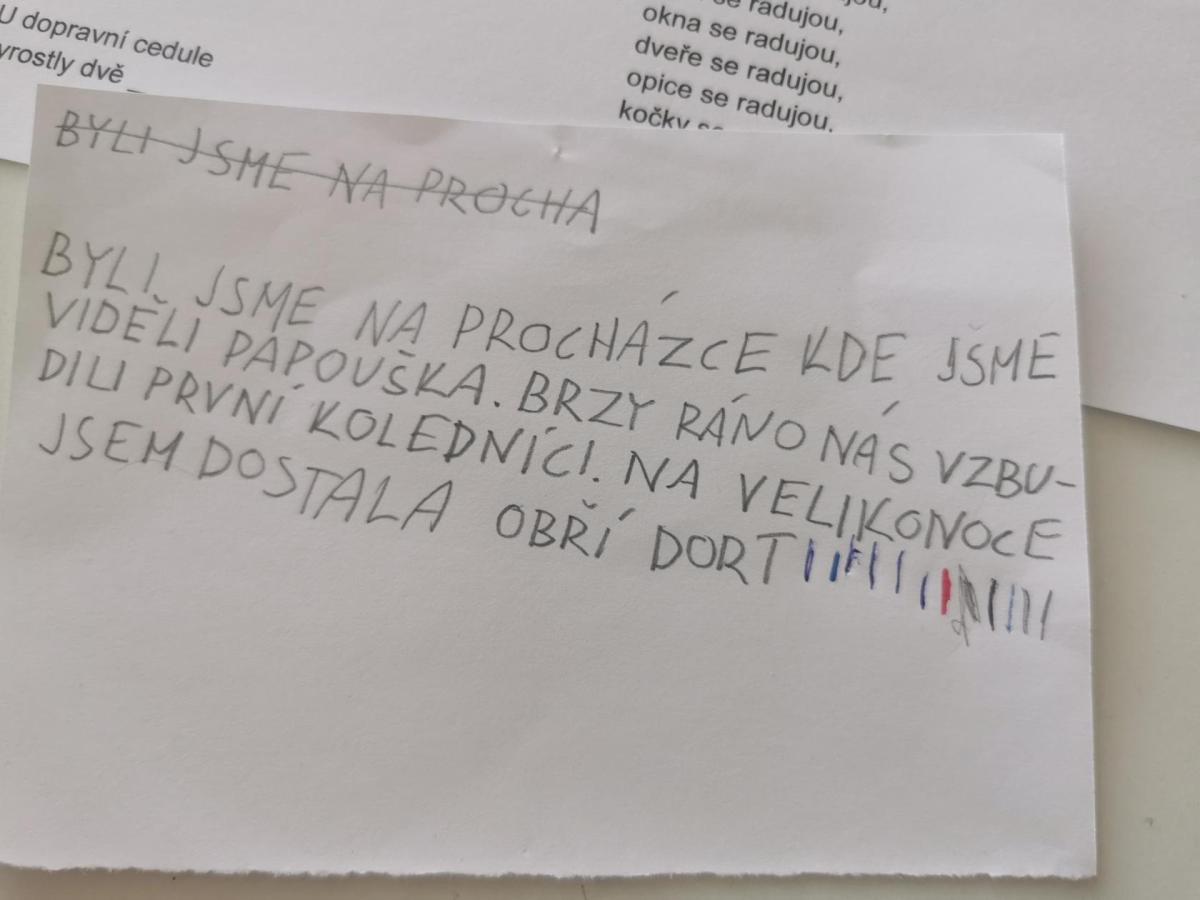 U dopravní cedule
yrostly dvě
se radujou,
okna se radujou,
dveře se radujou,
opice se radujou.
kočky se
BYLI JSME NA PROCHA
BYLI JSME NA PROCHÁZCE KDE JSME
VIDĚLI PAPOUŠKA. BRZY RÁNO NÁS VZBU-
DILI PRVNÍ KOLEDNÍCI. NA VELIKONOCE
JSEM DOSTALA OBŘÍ DORT